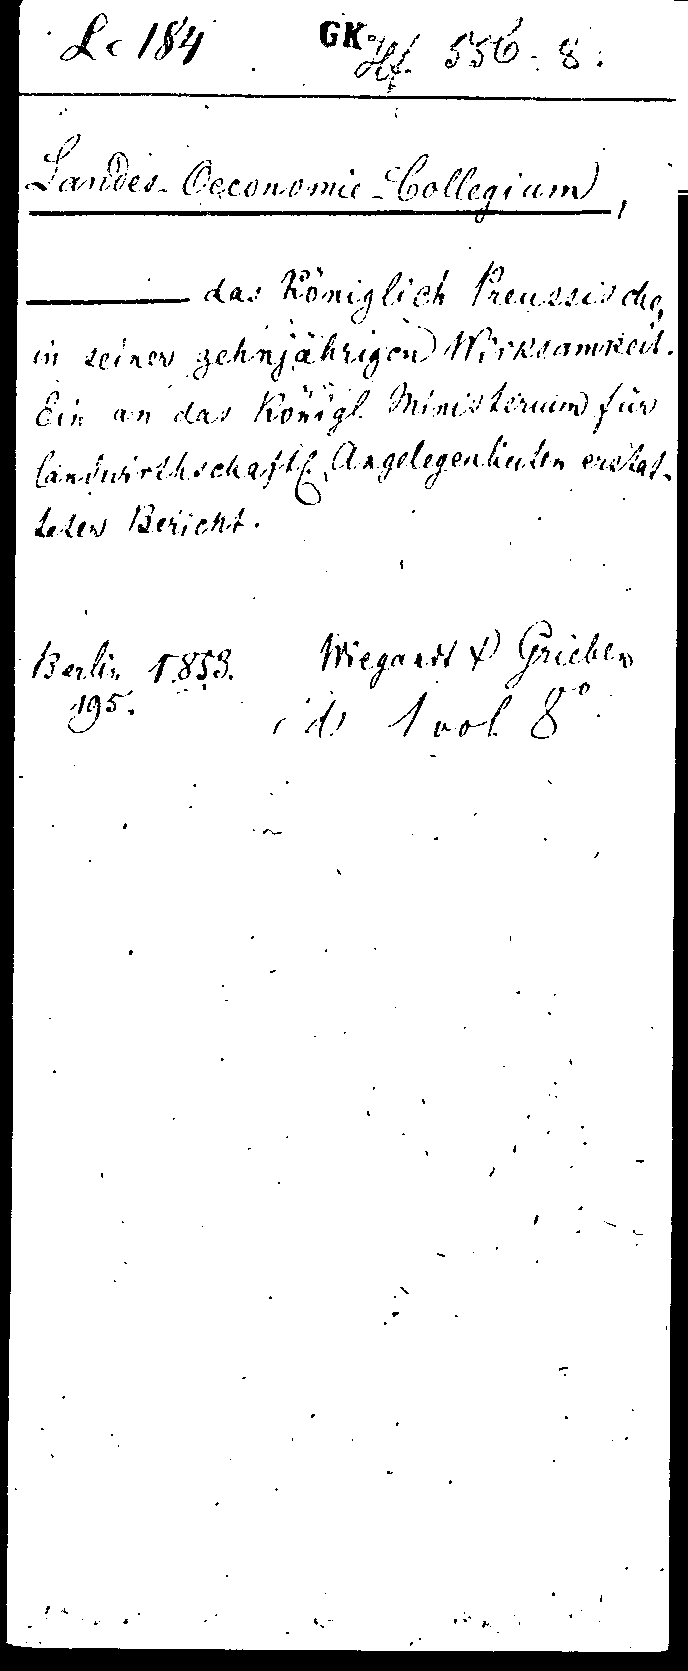 Lc 184 GK Hf. 556. 8.
Landes-Oeconomie-Collegium,
——— das Königlich Preussische,
in seiner zehnjährigen Wirksamkeit.
Ein an das Königl. Ministerium für
landwirthschaftl. Angelegenheiten erstat-
teter Bericht.
Berlin 1853. Wiegandt & Grieben
195. 1 vol 8°